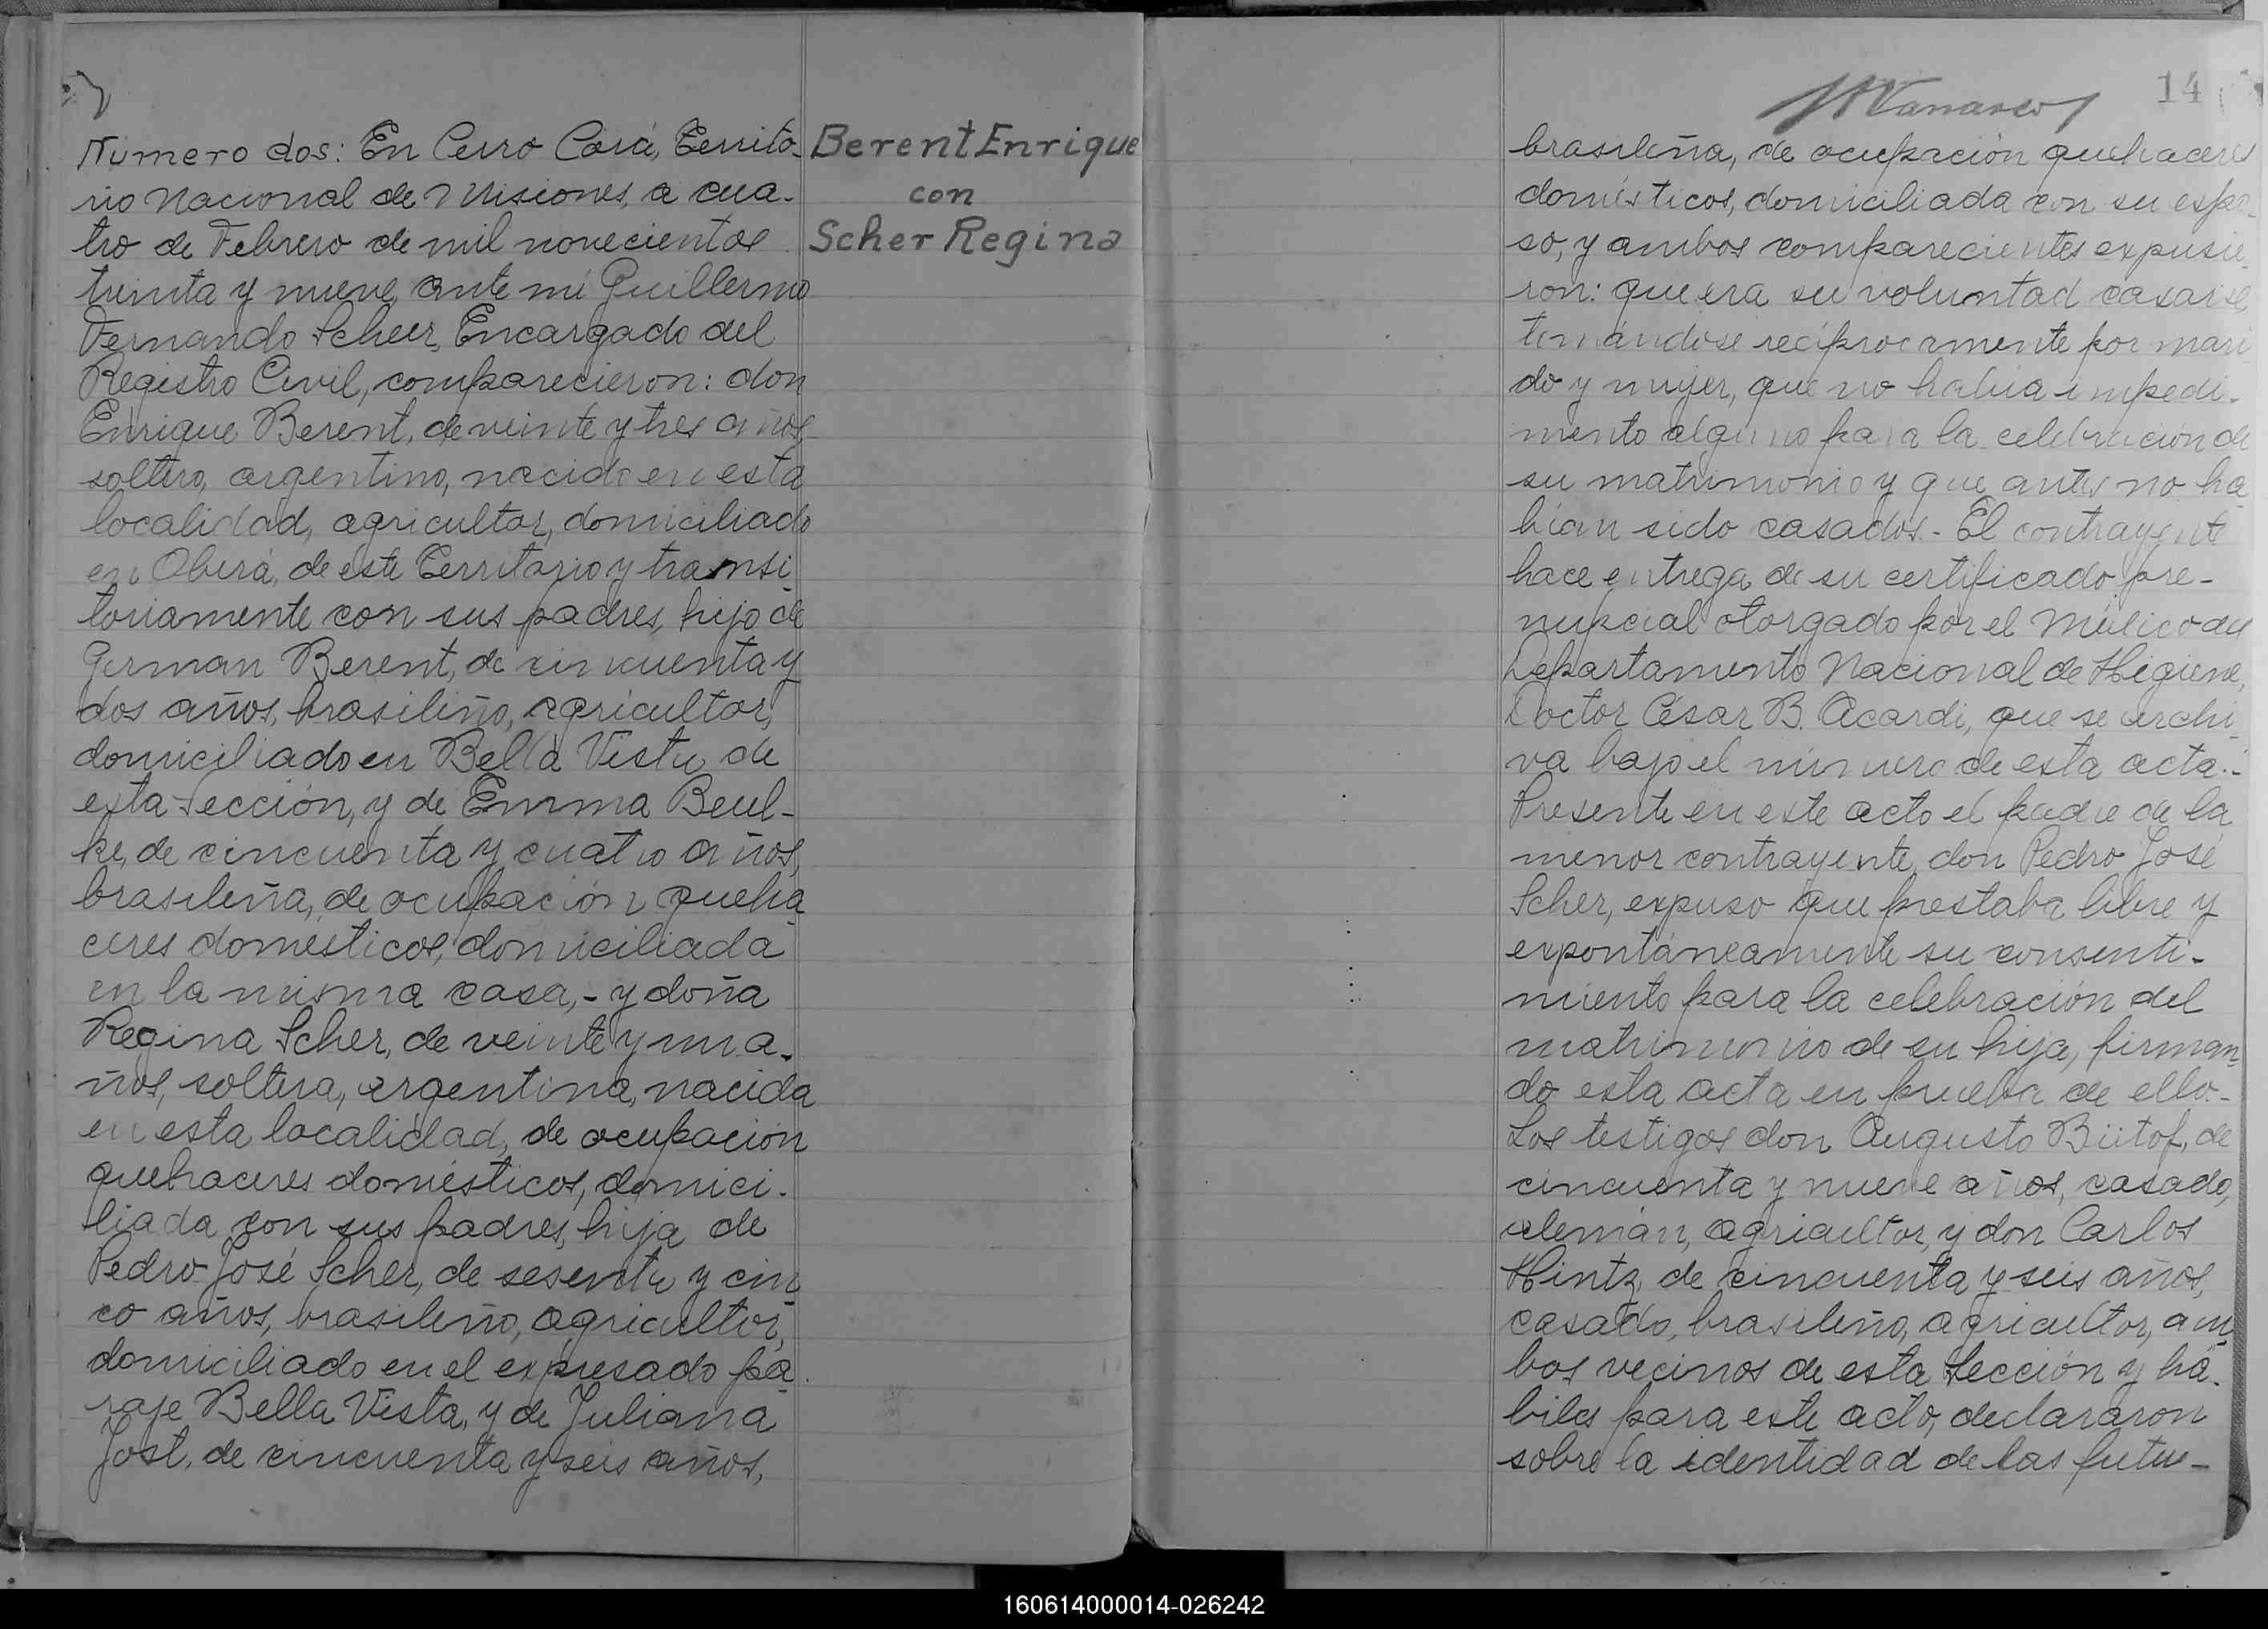 Número dos: En Cerro Corá, Territo-
rio Nacional de Misiones, a cua-
tro de Febrero de mil novecientos
treinta y nueve, ante mi Guillermo
Fernando Scheer, Encargado del
Registro Civil, comparecieron: don
Enrique Berent, de veinte y tres años,
soltero, argentino, nacido en esta
localidad, agricultor, domiciliado
en Oberá, de este Territorio y transi-
toriamente con sus padres, hijo de
German Berent, de cincuenta y
dos años, brasileño, agricultor,
domiciliado en Bella Vista, de
esta Sección, y de Emma Beul-
ke, de cincuenta y cuatro años,
brasileña, de ocupación queha-
ceres domésticos, domiciliada
en la misma casa,- y doña
Regina Scher, de veinte y un a-
ños, soltera, argentina, nacida
en esta localidad, de ocupación
quehaceres domésticos, domici-
liada con sus padres, hija de
Pedro José Scher, de sesenta y cin
co años, brasileño, agricultor,
domiciliado en el expresado pa-
raje Bella Vista, y de Juliana
Jost, de cincuenta y seis años,
Berent Enrique
con
Scher Regina
14
brasileña, de ocupación quehaceres
domésticos, domiciliada con su espo-
so, y ambos comparecientes expusie-
ron: que era su voluntad casarse,
tomándose recíprocamente por mari
do y mujer, que no había impedi-
mento alguno para la celebración de
su matrimonio y que antes no ha
bían sido casados.- El contrayente
hace entrega de su certificado pre-
nupcial otorgado por el Médico del
Departamento Nacional de Higiene,
Doctor César B. Acardi, que se archi-
va bajo el número de esta acta.-
Presente en este acto el padre de la
menor contrayente, don Pedro José
Scher, expuso que prestaba libre y
expontáneamente su consenti-
miento para la celebración del
matrimonio de su hija, firman-
do esta acta en prueba de ello.-
Los testigos don Augusto Bütof, de
cincuenta y nueve años, casado,
alemán, agricultor, y don Carlos
Hintz, de cincuenta y seis años,
casado, brasileño, agricultor, am-
bos vecinos de esta Sección y há-
biles para este acto, declararon
sobre la identidad de las futu-
160614000014-026242